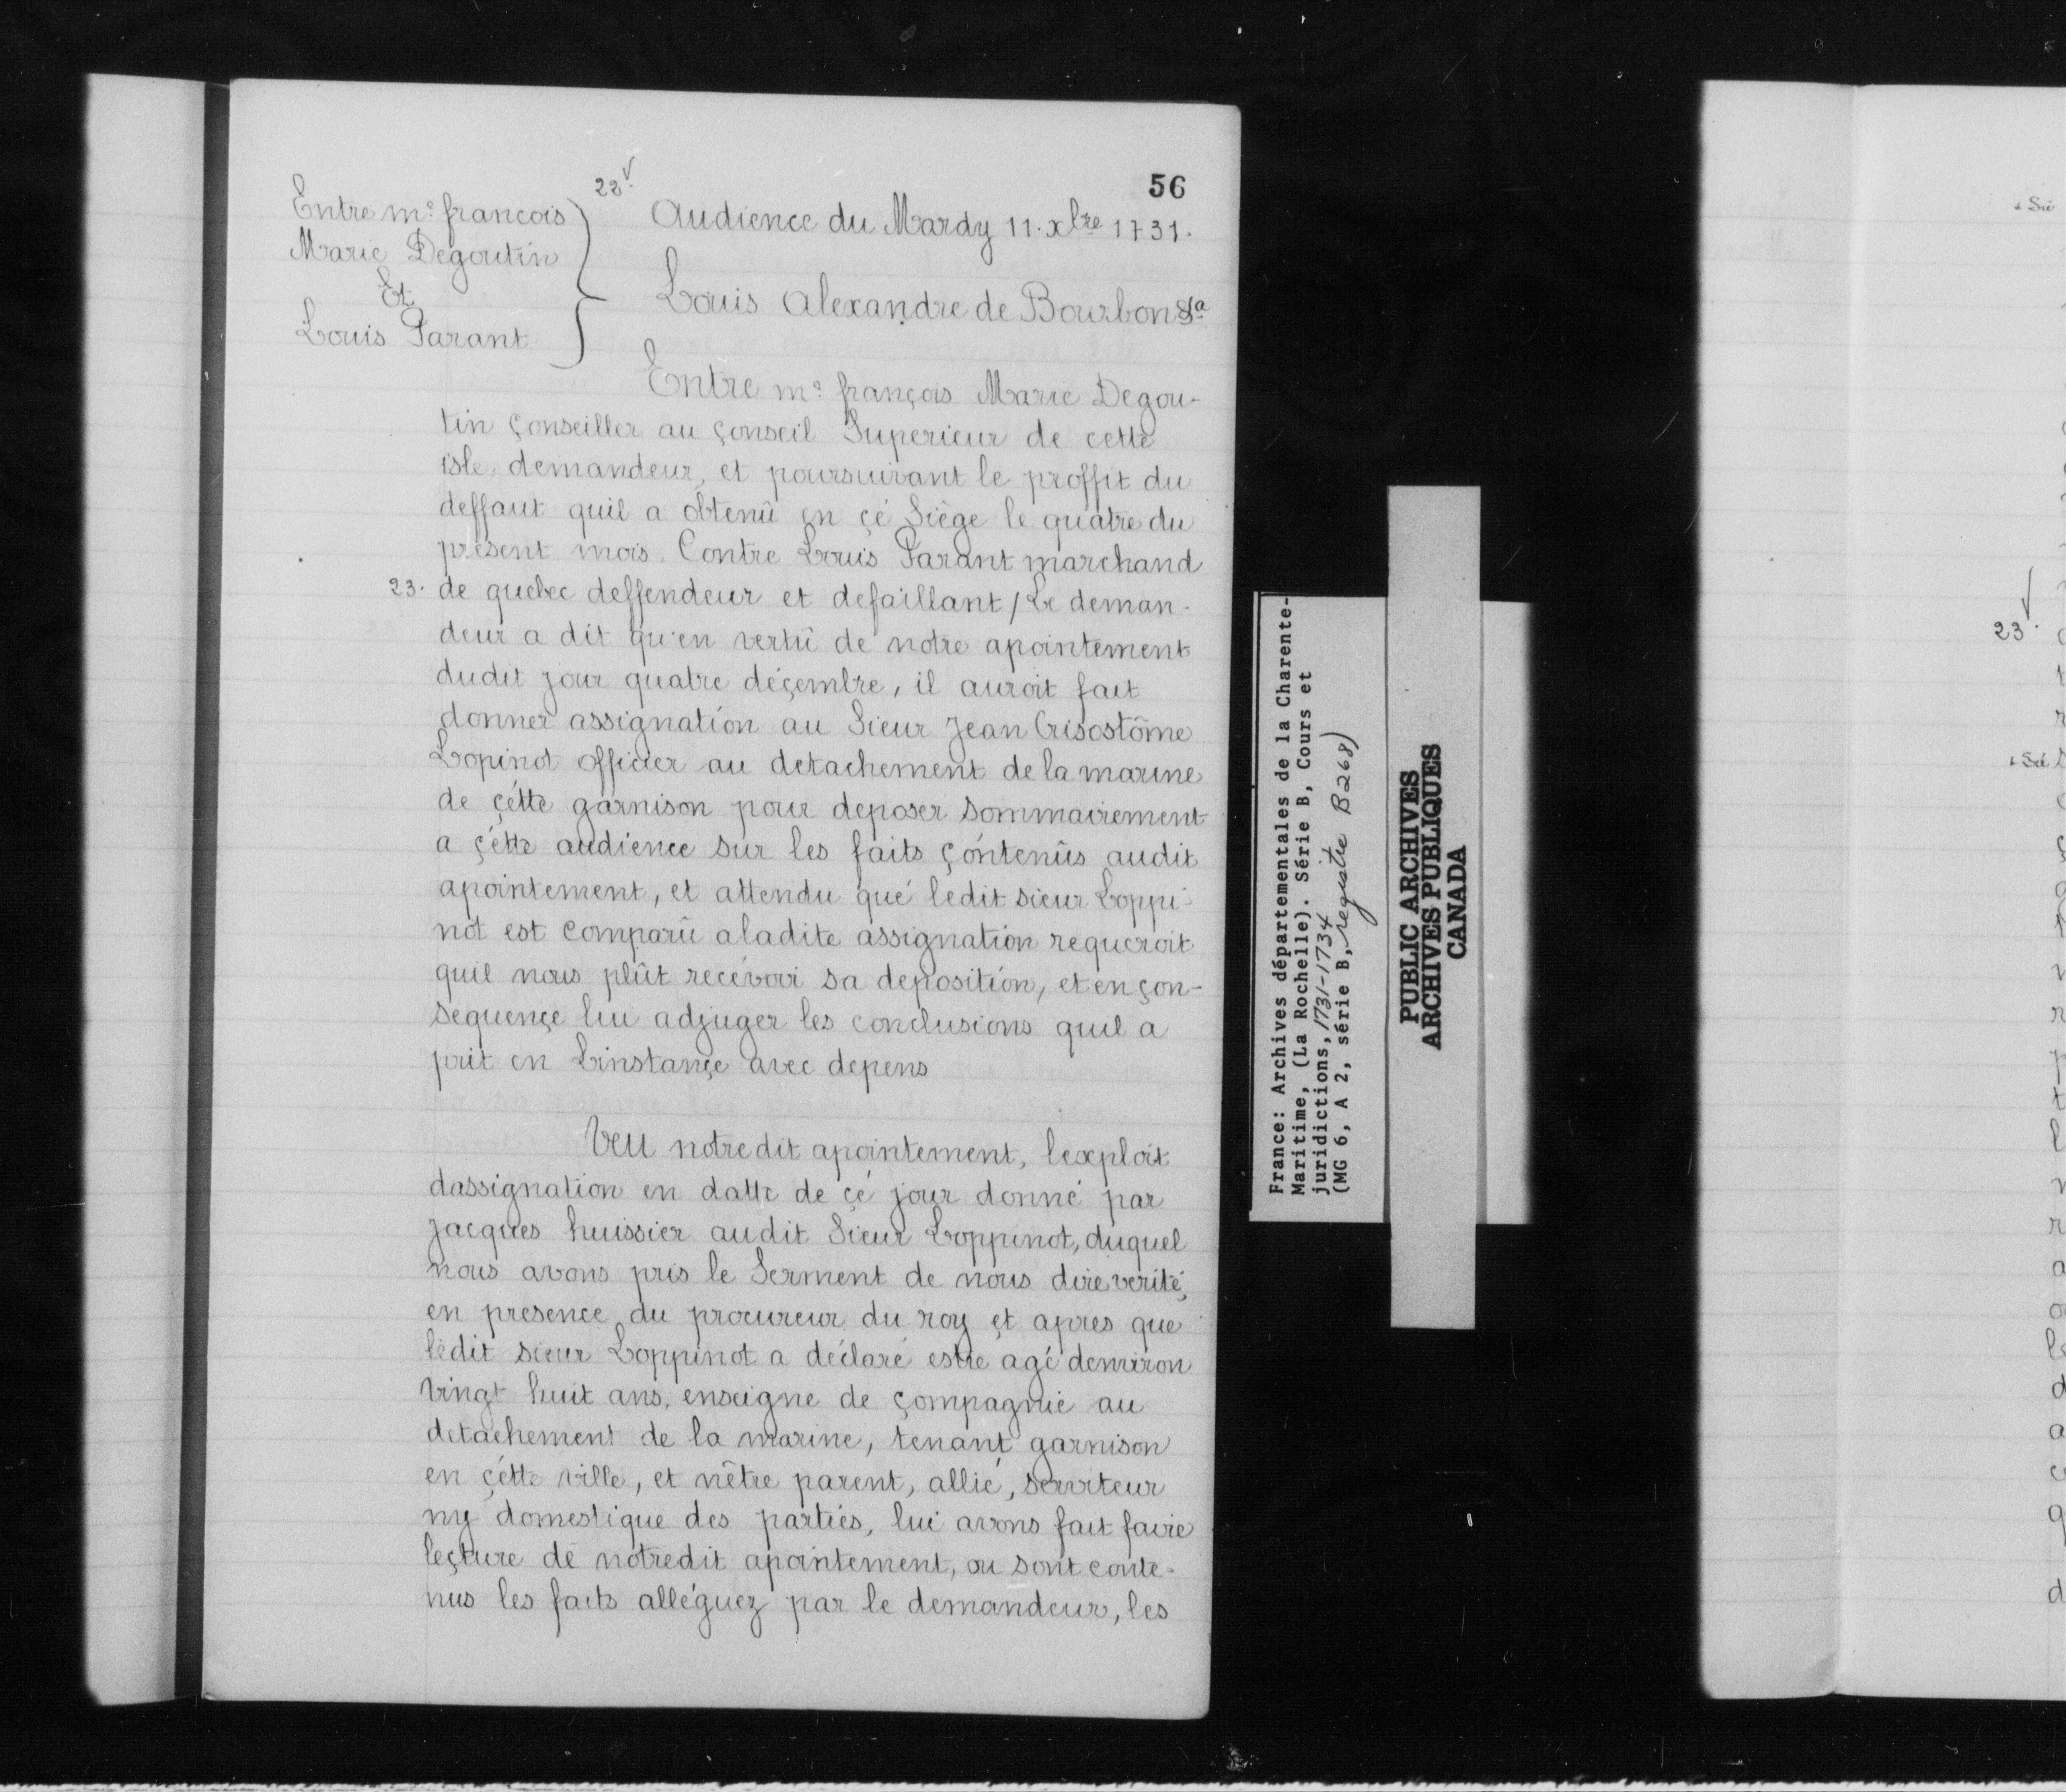 56
22v.
Entre me. francois
Marie Degoutin
Et
Louis Parant
Audience du Mardy 11. xbre 1731.
Louis Alexandre de Bourbon &a
Entre me. françois Marie Degou-
tin çonseiller au çonseil Superieur de cette
isle, demandeur, et poursuivant le proffit du
deffaut quil a obtenû en çé Siège le quatre du
présent mois. Contre Louis Parant marchand
23. de quebec deffendeur et defaillant / Le deman-
deur a dit qu'en vertû de notre apointement
dudit jour quatre déçembre, il auroit fait
donner assignation au Sieur Jean Crisostôme
Lopinot officier au detachement de la marine
de çétte garnison pour deposer sommairement
a çétte audience sur les faits çóntenûs audit
apointement, et attendu qué ledit sieur Loppi-
not est comparû aladite assignation requeroit
quil nous plût recévoir sa deposition, et en çon-
sequençe lui adjuger les conclusions quil a
prit en Linstançe avec depens
Veu notredit apointement, lexploit
dassignation en datte de çé jour donné par
Jacques huissier audit Sieur Loppinot, duquel
nous avons pris le Serment de nous dire verité,
en presence du procureur du roy et apres que
lédit sieur Loppinot a déclaré estre agé denviron
vingt huit ans, enseigne de çompagnie au
detachement de la marine, tenant garnison
en çétte ville, et nêtre parent, allié, serviteur
ny domestique des parties, lui avons fait faire
leçture dé notredit apointement, ou sont conte-
nus les faits alléguez par le demandeur, les
France: Archives départementales de la Charente-
Maritime, (La Rochelle). Série B, Cours et
juridictions, 1731-1734
(MG 6, A 2, série B, registre B268)
PUBLIC ARCHIVES
ARCHIVES PUBLIQUES
CANADA
23.